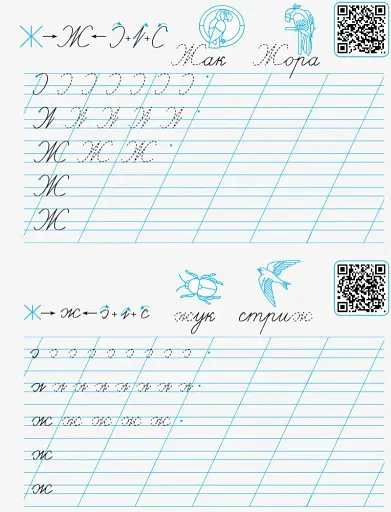 Ж → Ж ← Ɔ + И + С
Жак Жора
Ж Ж Ж
Ж
Ж
ж → ж ← ɔ + и + с
жук стриж
ж ж ж ж ж
ж
ж